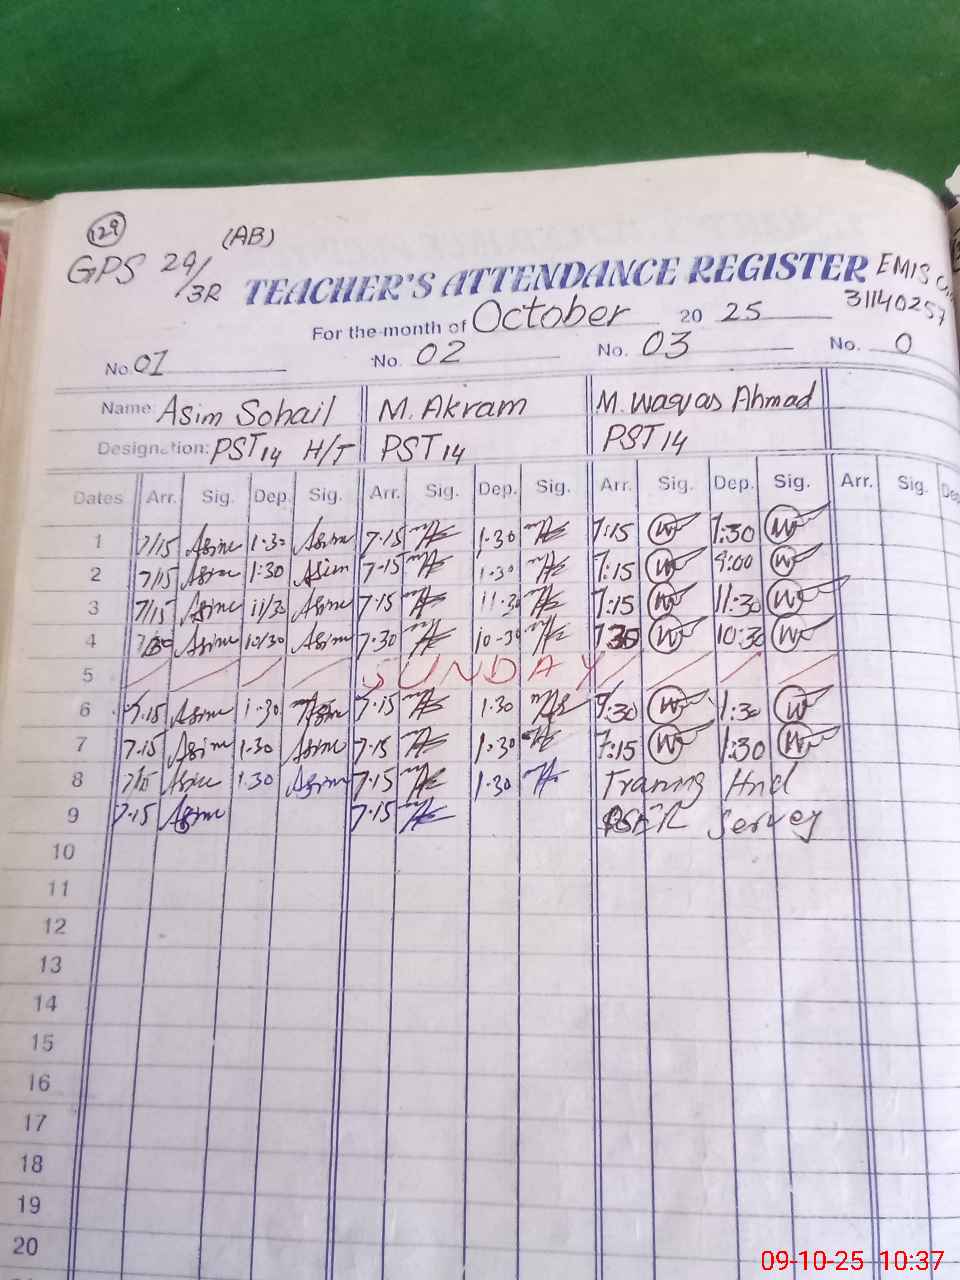 129
(AB)
GPS 29/3R
TEACHER'S ATTENDANCE REGISTER
EMIS
31140257
For the month of October 2025
No. 01 No. 02 No. 03 No. 0
Name: Asim Sohail M. Akram M. Waqas Ahmad
Designation: PST 14 H/T PST 14 PST 14
Dates Arr. Sig. Dep. Sig. Arr. Sig. Dep. Sig. Arr. Sig. Dep. Sig. Arr. Sig. Dep
1 7/15 Asim 1.30 Asim 7.15 1.30 7:15 1:30
2 7/15 Asim 1:30 Asim 7.15 1.30 7:15
3 7/15 Asim 11/30 Asim 7.15 11.30 7:15 11:30
4 Asim 10/30 Asim 7.30 10-30 10:30
5 SUNDAY
6 7.15 Asim 1.30 Asim 7.15 1.30 1:30
7 7.15 Asim 1.30 Asim 7.15 1.30 7:15 1:30
8 7/15 Asim 1.30 Asim 7.15 1.30 Traning Hnd
9 7.15 Asim 7.15 Servey
10
11
12
13
14
15
16
17
18
19
20
09-10-25 10:37